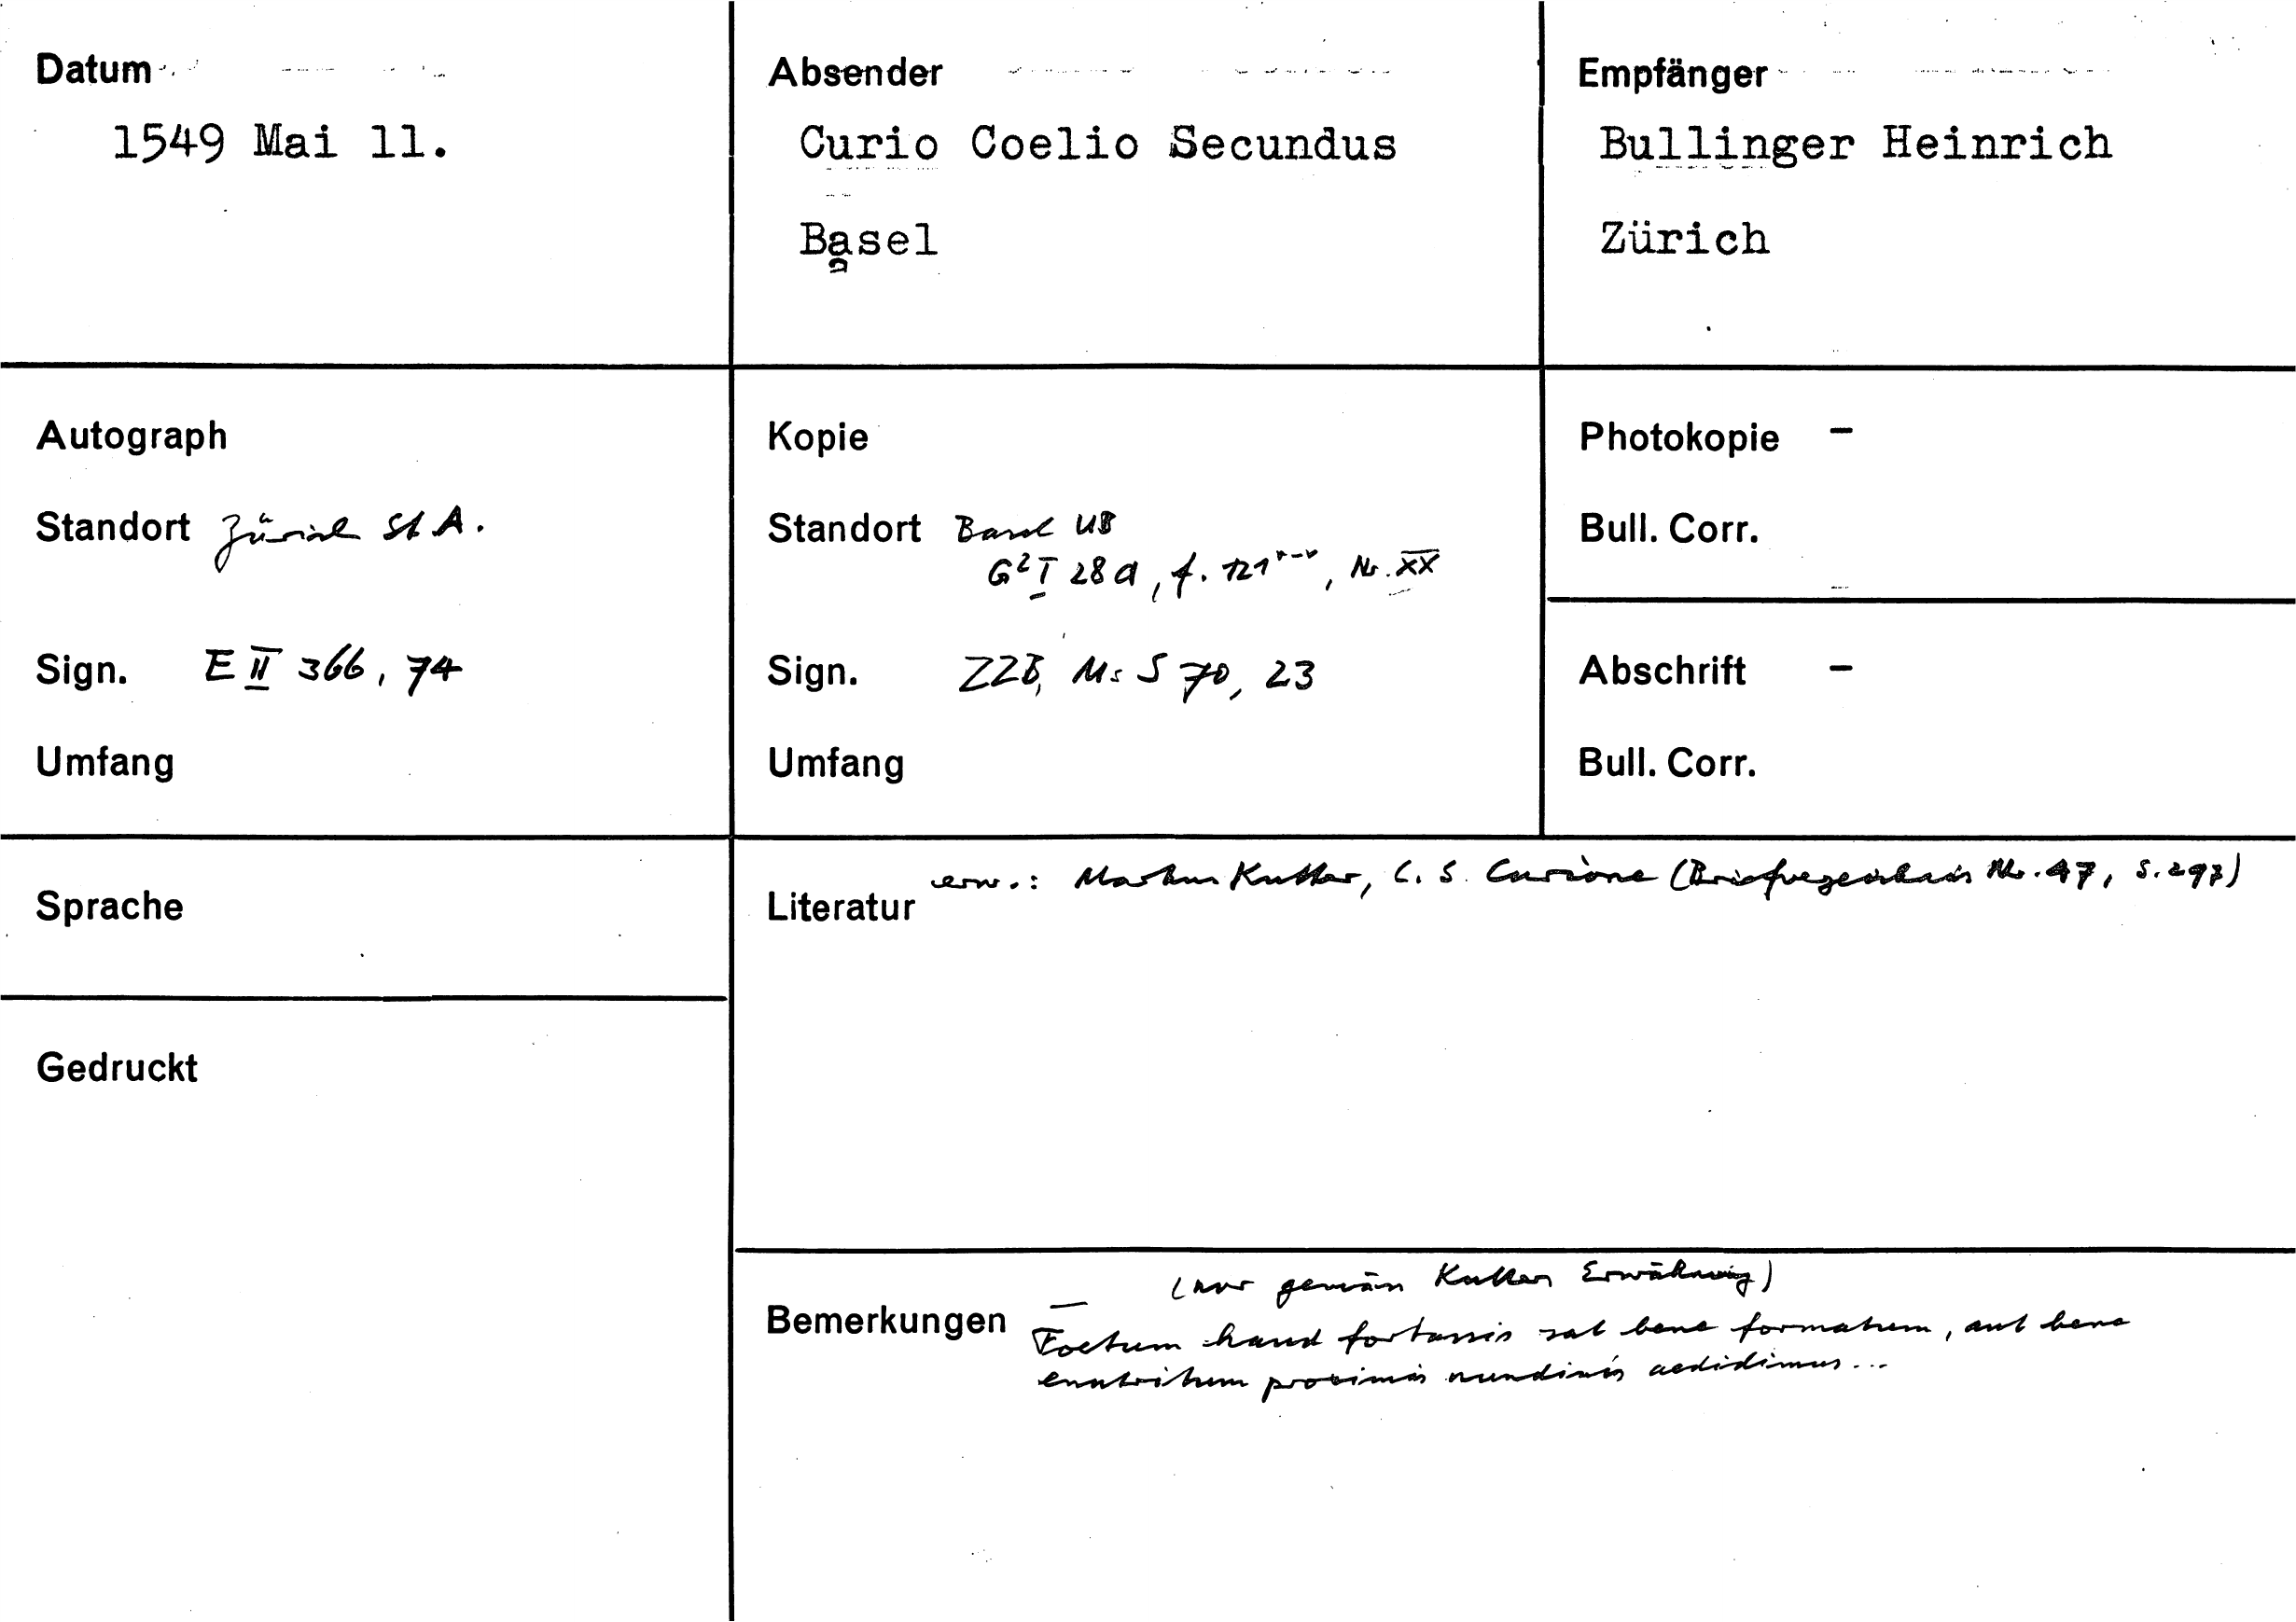 Datum
1549 Mai 11.
Absender
Curio Coelio Secundus
Basel
Empfänger
Bullinger Heinrich
Zürich
Autograph
Standort Zürich StA.
Sign. E II 366, 74
Umfang
Kopie
Standort Basel UB
G² I 28a, f. 121 r-v, Nr. XX
Sign. ZZB, Ms S 70, 23
Umfang
Photokopie -
Bull. Corr.
Abschrift -
Bull. Corr.
Sprache
Gedruckt
Literatur erw.: Markus Kutter, C. S. Curione (Briefverzeichnis Nr. 47, S. 293)
Bemerkungen
(nur gemäss Kutters Erwähnung)
Foetum haud fortassis sat bene formatum, aut bene
enutritum proximis nundinis aedidimus...